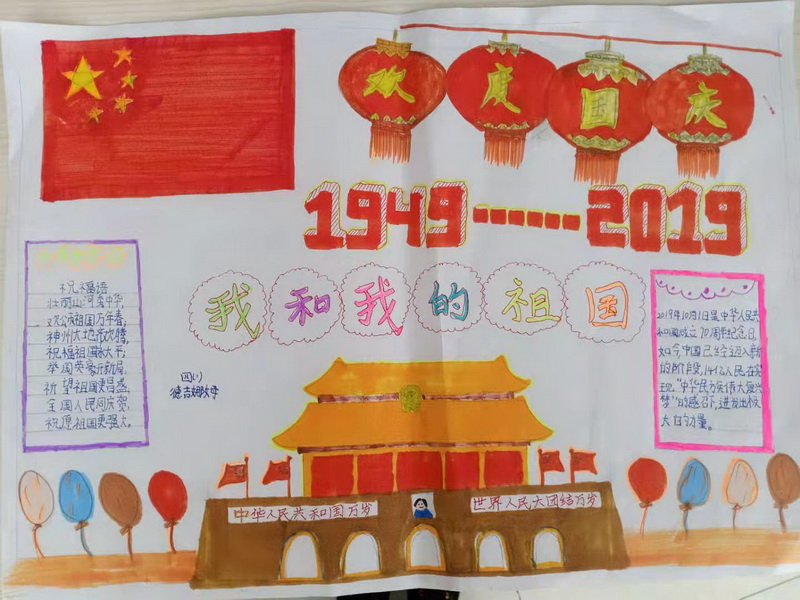 欢度国庆
1949------2019
我和我的祖国
祝福语
壮丽山河美中华,
欢欣祖国万年春,
神州大地齐欢腾,
祝福祖国永太平,
举国英豪
祈望祖国更昌盛,
全国人民同庆贺,
祝愿祖国更强大。
四(1)
德吉娜牧
2019年10月1日是中华人民共
和国成立70周年纪念日,
如今,中国已经迈入新
的阶段,14亿人民在实
现,"中华民族伟大复兴
梦"的感召下,迸发出极
大的力量。
中华人民共和国万岁
世界人民大团结万岁